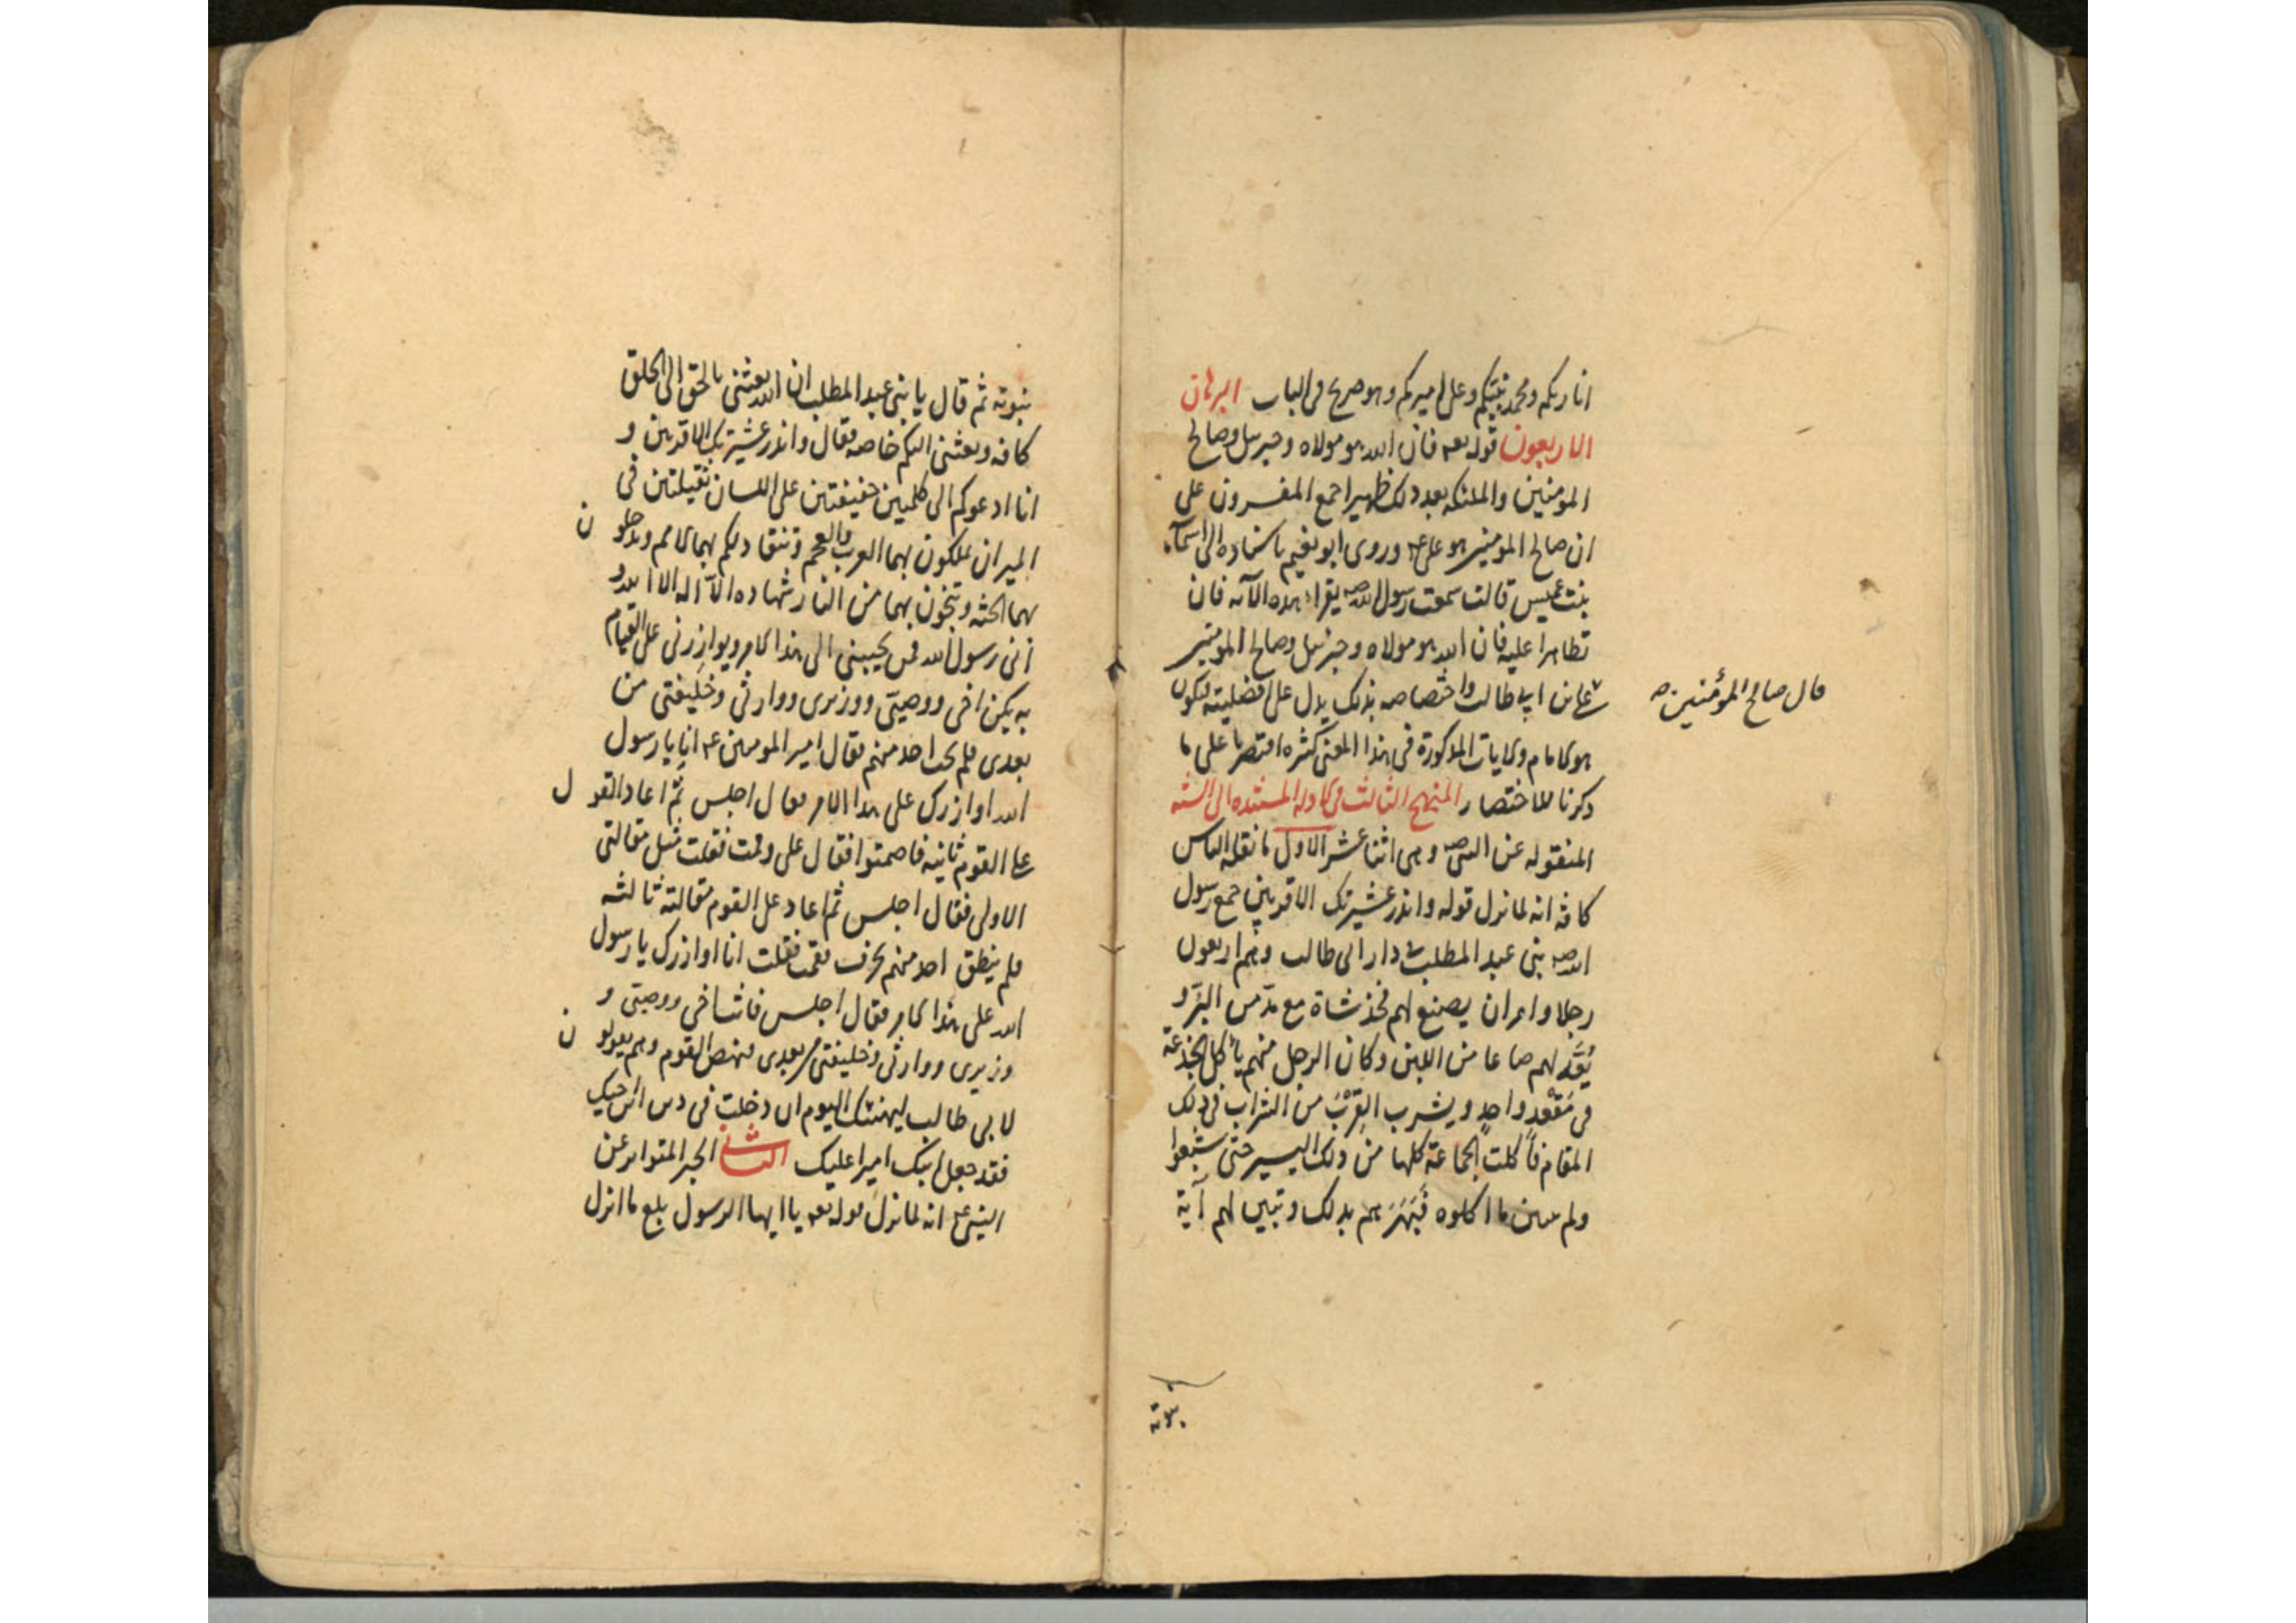 انا ربكم ومحمد نبيكم وعلى اميركم وهو صريح فى الباب البرهان
الاربعون قوله تعـ فان الله هو مولاه وجبريل وصالح
المومنين والملئكه بعد ذلك ظهير اجمع المفسرون على
ان صالح المومنين هو على عـ وروى ابو نعيم باسناده الى اسماء
بنت عميس قالت سمعت رسول الله صـ يقراء هذه الآيه فان
تظاهرا عليه فان الله هو مولاه وجبرئيل وصالح المومنين
قال صالح المؤمنين صـ
على بن ابى طالب واختصاصه بذلك يدل على افضليته فيكون
هو الامام والايات المذكورة فى هذا المعنى كثره اقتصرنا على ما
ذكرنا للاختصار المنهج الثالث فى الادله المستنده الى السنه
المنقوله عن النبى صـ وهى اثنا عشر الاول ما نقله الناس
كافه انه لما نزل قوله وانذر عشيرتك الاقربين جمع رسول
الله صـ بنى عبد المطلب فى دار ابى طالب وهم اربعون
رجلا وامر ان يصنع لهم فخذ شاة مع مدّ من البرّ و
يُعَدّ لهم صاعا من اللبن وكان الرجل منهم يأكل الجذعة
فى مَقْعَدٍ واحدٍ ويشرب القِرْبَ من الشراب فى ذلك
المقام فأكلت الجماعة كلها من ذلك اليسير حتى شبعوا
ولم يبين ما اكلوه فَبَهَرَهم بذلك وتبين لهم آية
نبوته
نبوته ثم قال يا بنى عبد المطلب ان الله بعثنى بالحق الى الخلق
كافه وبعثنى اليكم خاصه فقال وانذر عشيرتك الاقربين و
انا ادعوكم الى كلمتين خفيفتين على اللسان ثقيلتين فى
الميزان تملكون بهما العرب والعجم وتنقاد لكم بهما الامم وتدخلون
بهما الجنه وتنجون بهما من النار شهاده الّا اله الا الله و
انى رسول الله فمن يجيبنى الى هذا الامر ويوازرنى على القيام
به يكن اخى ووصيّى ووزيرى ووارثى وخليفتى من
بعدى فلم يجب احد منهم فقال امير المومنين عـ انا يا رسول
الله اوازرك على هذا الامر فقال اجلس ثم اعاد القول
على القوم ثانيه فاصمتوا فقال على وقمت فقلت مثل مقالتى
الاولى فقال اجلس ثم اعاد على القوم مقالته ثالثه
فلم ينطق احد منهم بحرف فقمت فقلت انا اوازرك يا رسول
الله على هذا الامر فقال اجلس فانت اخى ووصيى و
وزيرى ووارثى وخليفتى من بعدى فنهض القوم وهم يقولون
لابى طالب ليهنئك اليوم ان دخلت فى دين ابن اخيك
فقد جعل ابنك اميرا عليك الثانى الخبر المتواتر عن
النبى عـ انه لما نزل قوله تعـ يا ايها الرسول بلغ ما انزل